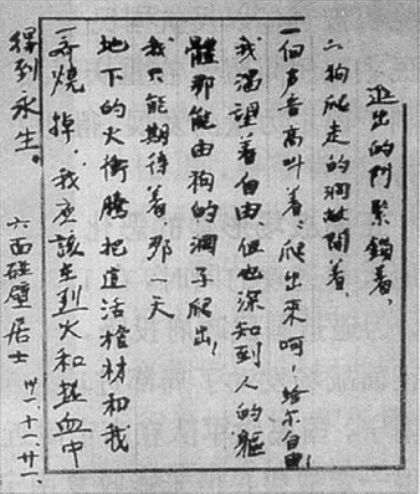 進出的門緊鎖着，
为狗爬走的洞敞開着、
一個声音高叫着：爬出來呵！給尔自由！
我渴望着自由，但也深知到人的軀
體那能由狗的洞子爬出！
我只能期待着，那一天
地下的火衝騰，把這活棺材和我
一齊燒掉，我应該在烈火和熱血中
得到永生。
六面碰壁居士
卅一、十一、廿一、